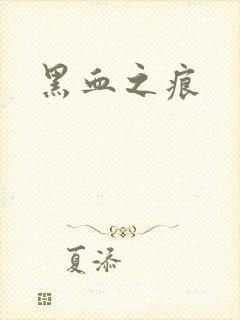 黑血之痕
夏添